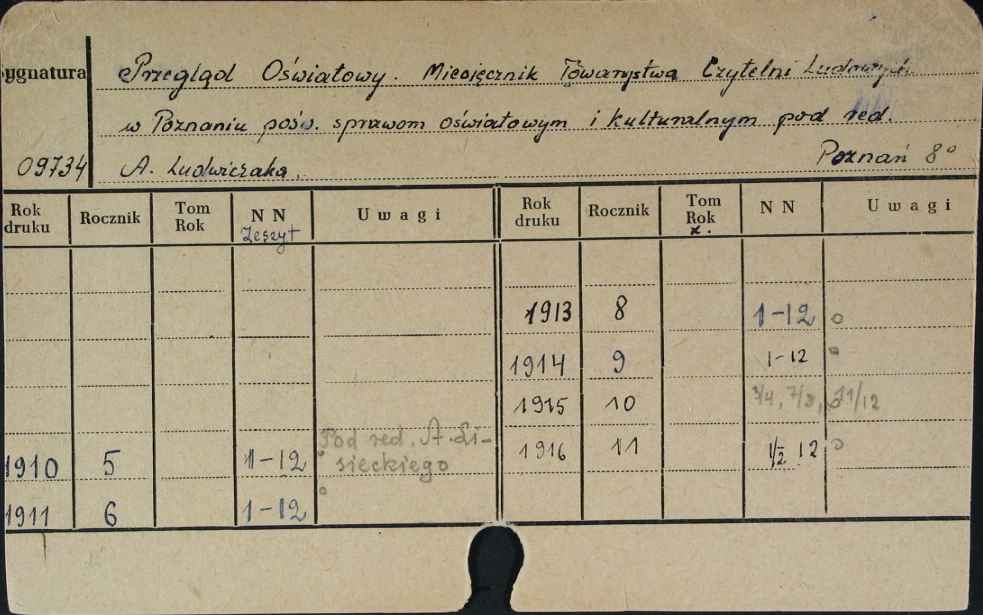 Sygnatura
Przegląd Oświatowy. Miesięcznik Towarzystwa Czytelni Ludowych
w Poznaniu pośw. sprawom oświatowym i kulturalnym pod red.
09734 A. Ludwiczaka. Poznań 8°
Rok druku Rocznik Tom Rok NN Zeszyt Uwagi Rok druku Rocznik Tom Rok z. NN Uwagi
1913 8 1-12 o
1914 9 1-12 o
1915 10 3/4, 7/8, 11/12
Pod red. A. Li-
1910 5 1-12 sieckiego 1916 11 1/2 12 o
1911 6 1-12 o